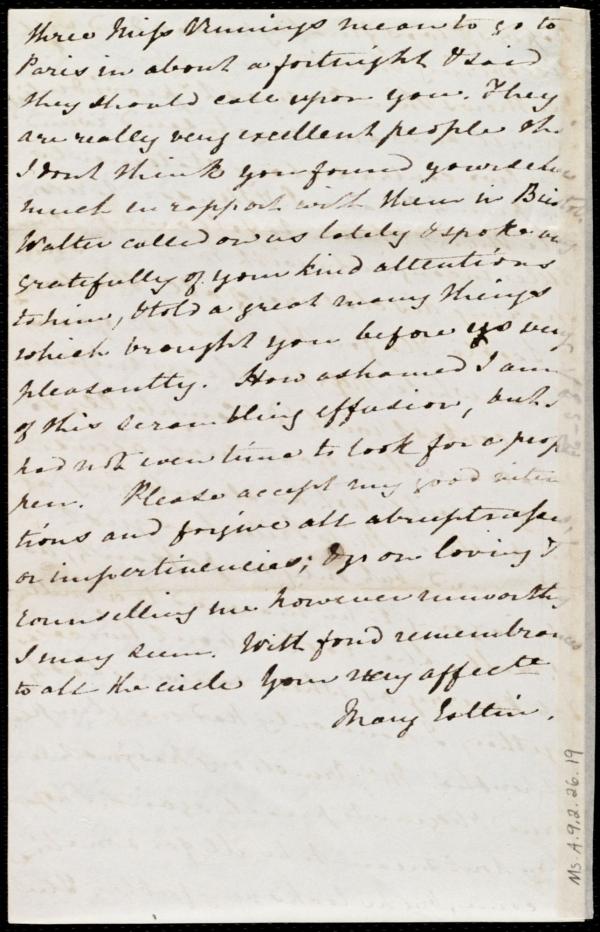 three Miss Vennings mean to go to
Paris in about a fortnight & said
they should call upon you. They
are really very excellent people tho
I dont think you found yourselves
much en rapport with them in Bristol.
Walter called on us lately & spoke very
gratefully of your kind attentions
to him, & told a great many things
which brought you before us very
pleasantly. How ashamed I am
of this scrambling effusion, but I
had not even time to look for a prop
pen. Please accept my good inten
tions and forgive all abruptnesses,
or impertinencies; & go on loving &
counselling me however unworthy
I may seem. With fond remembrances
to all the circle Your very affecte
Mary Estlin.
Ms. A.9.2.26.19